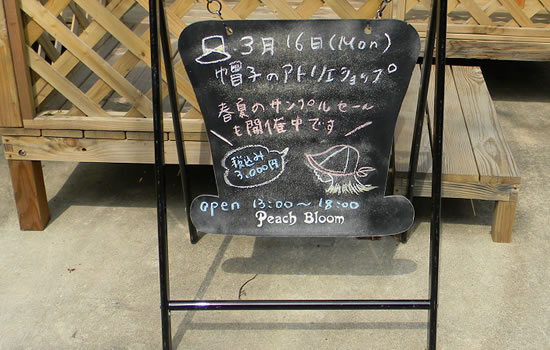 3月16日(Mon)
帽子のアトリエショップ
春夏のサンプルセール
も開催中です
税込み
3,000円
open 13:00～18:00
Peach Bloom